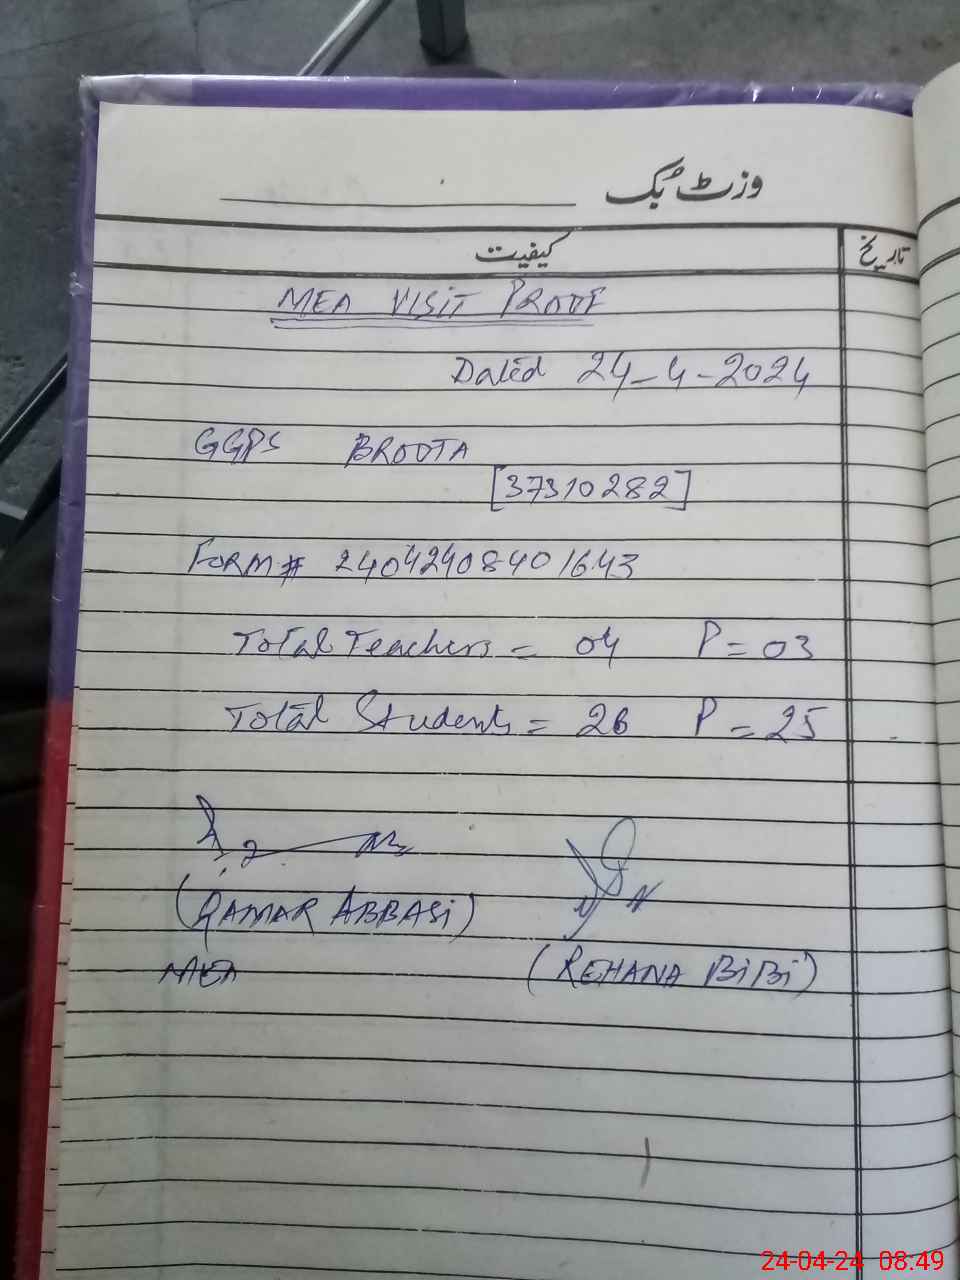 وزٹ بُک
کیفیت
تاریخ
MEA VISIT PROOF
Dated 24-4-2024
GGPS BROOTA
[37310282]
FORM# 24042408401643
Total Teachers = 04 P = 03
Total Students = 26 P = 25
(QAMAR ABBASi)
MEA
(REHANA BiBi)
24-04-24 08:49